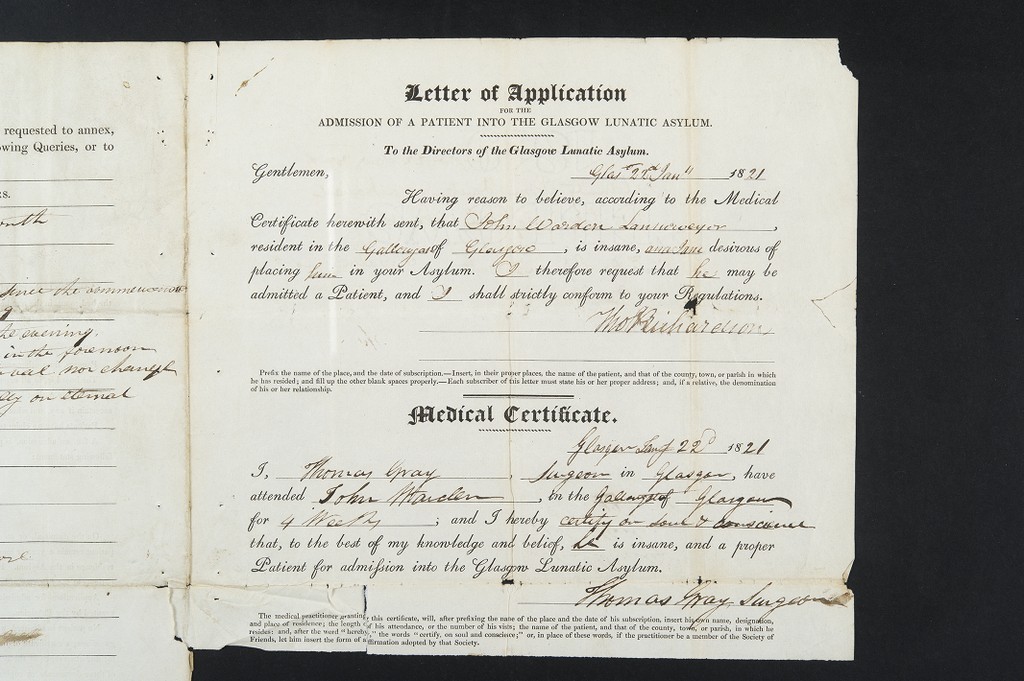 requested to annex,
owing Queries, or to
rs.
onth
since the commencem
the evening.
in the forenoon
nor change
on eternal
Letter of Application
FOR THE
ADMISSION OF A PATIENT INTO THE GLASGOW LUNATIC ASYLUM.
To the Directors of the Glasgow Lunatic Asylum.
Gentlemen,
Glasw 22d Jany 1821
Having reason to believe, according to the Medical
Certificate herewith sent, that John Warden
resident in the of Glasgow, is insane, desirous of
placing him in your Asylum. I therefore request that he may be
admitted a Patient, and I shall strictly conform to your Regulations.
Thos Richardson
Prefix the name of the place, and the date of subscription.—Insert, in their proper places, the name of the patient, and that of the county, town, or parish in which
he has resided; and fill up the other blank spaces properly.—Each subscriber of this letter must state his or her proper address; and, if a relative, the denomination
of his or her relationship.
Medical Certificate.
Glasgow Jany 22d 1821
I, Thomas Gray, Surgeon in Glasgow, have
attended John Warden, in the of Glasgow
for 4 Weeks; and I hereby certify on soul & conscience
that, to the best of my knowledge and belief, he is insane, and a proper
Patient for admission into the Glasgow Lunatic Asylum.
Thomas Gray Surgeon
The medical practitioner granting this certificate, will, after prefixing the name of the place and the date of his subscription, insert his own name, designation,
and place of residence; the length of his attendance, or the number of his visits; the name of the patient, and that of the county, town, or parish, in which he
resides: and, after the word "hereby," the words "certify, on soul and conscience;" or, in place of these words, if the practitioner be a member of the Society of
Friends, let him insert the form of affirmation adopted by that Society.